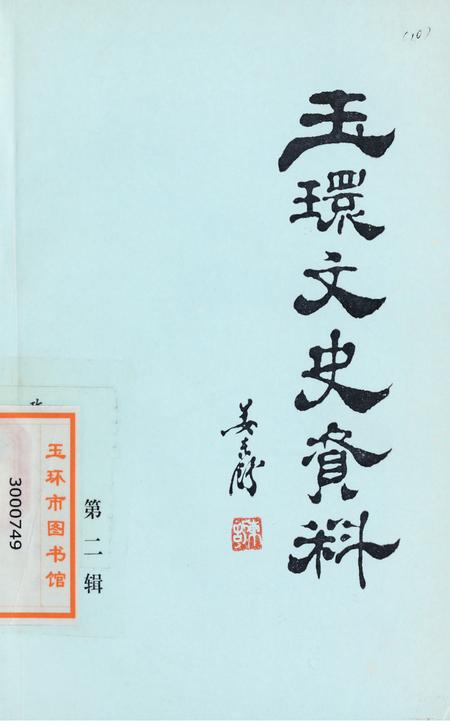 (10)
玉環文史資料
姜東舒
第二辑
玉环市图书馆
3000749